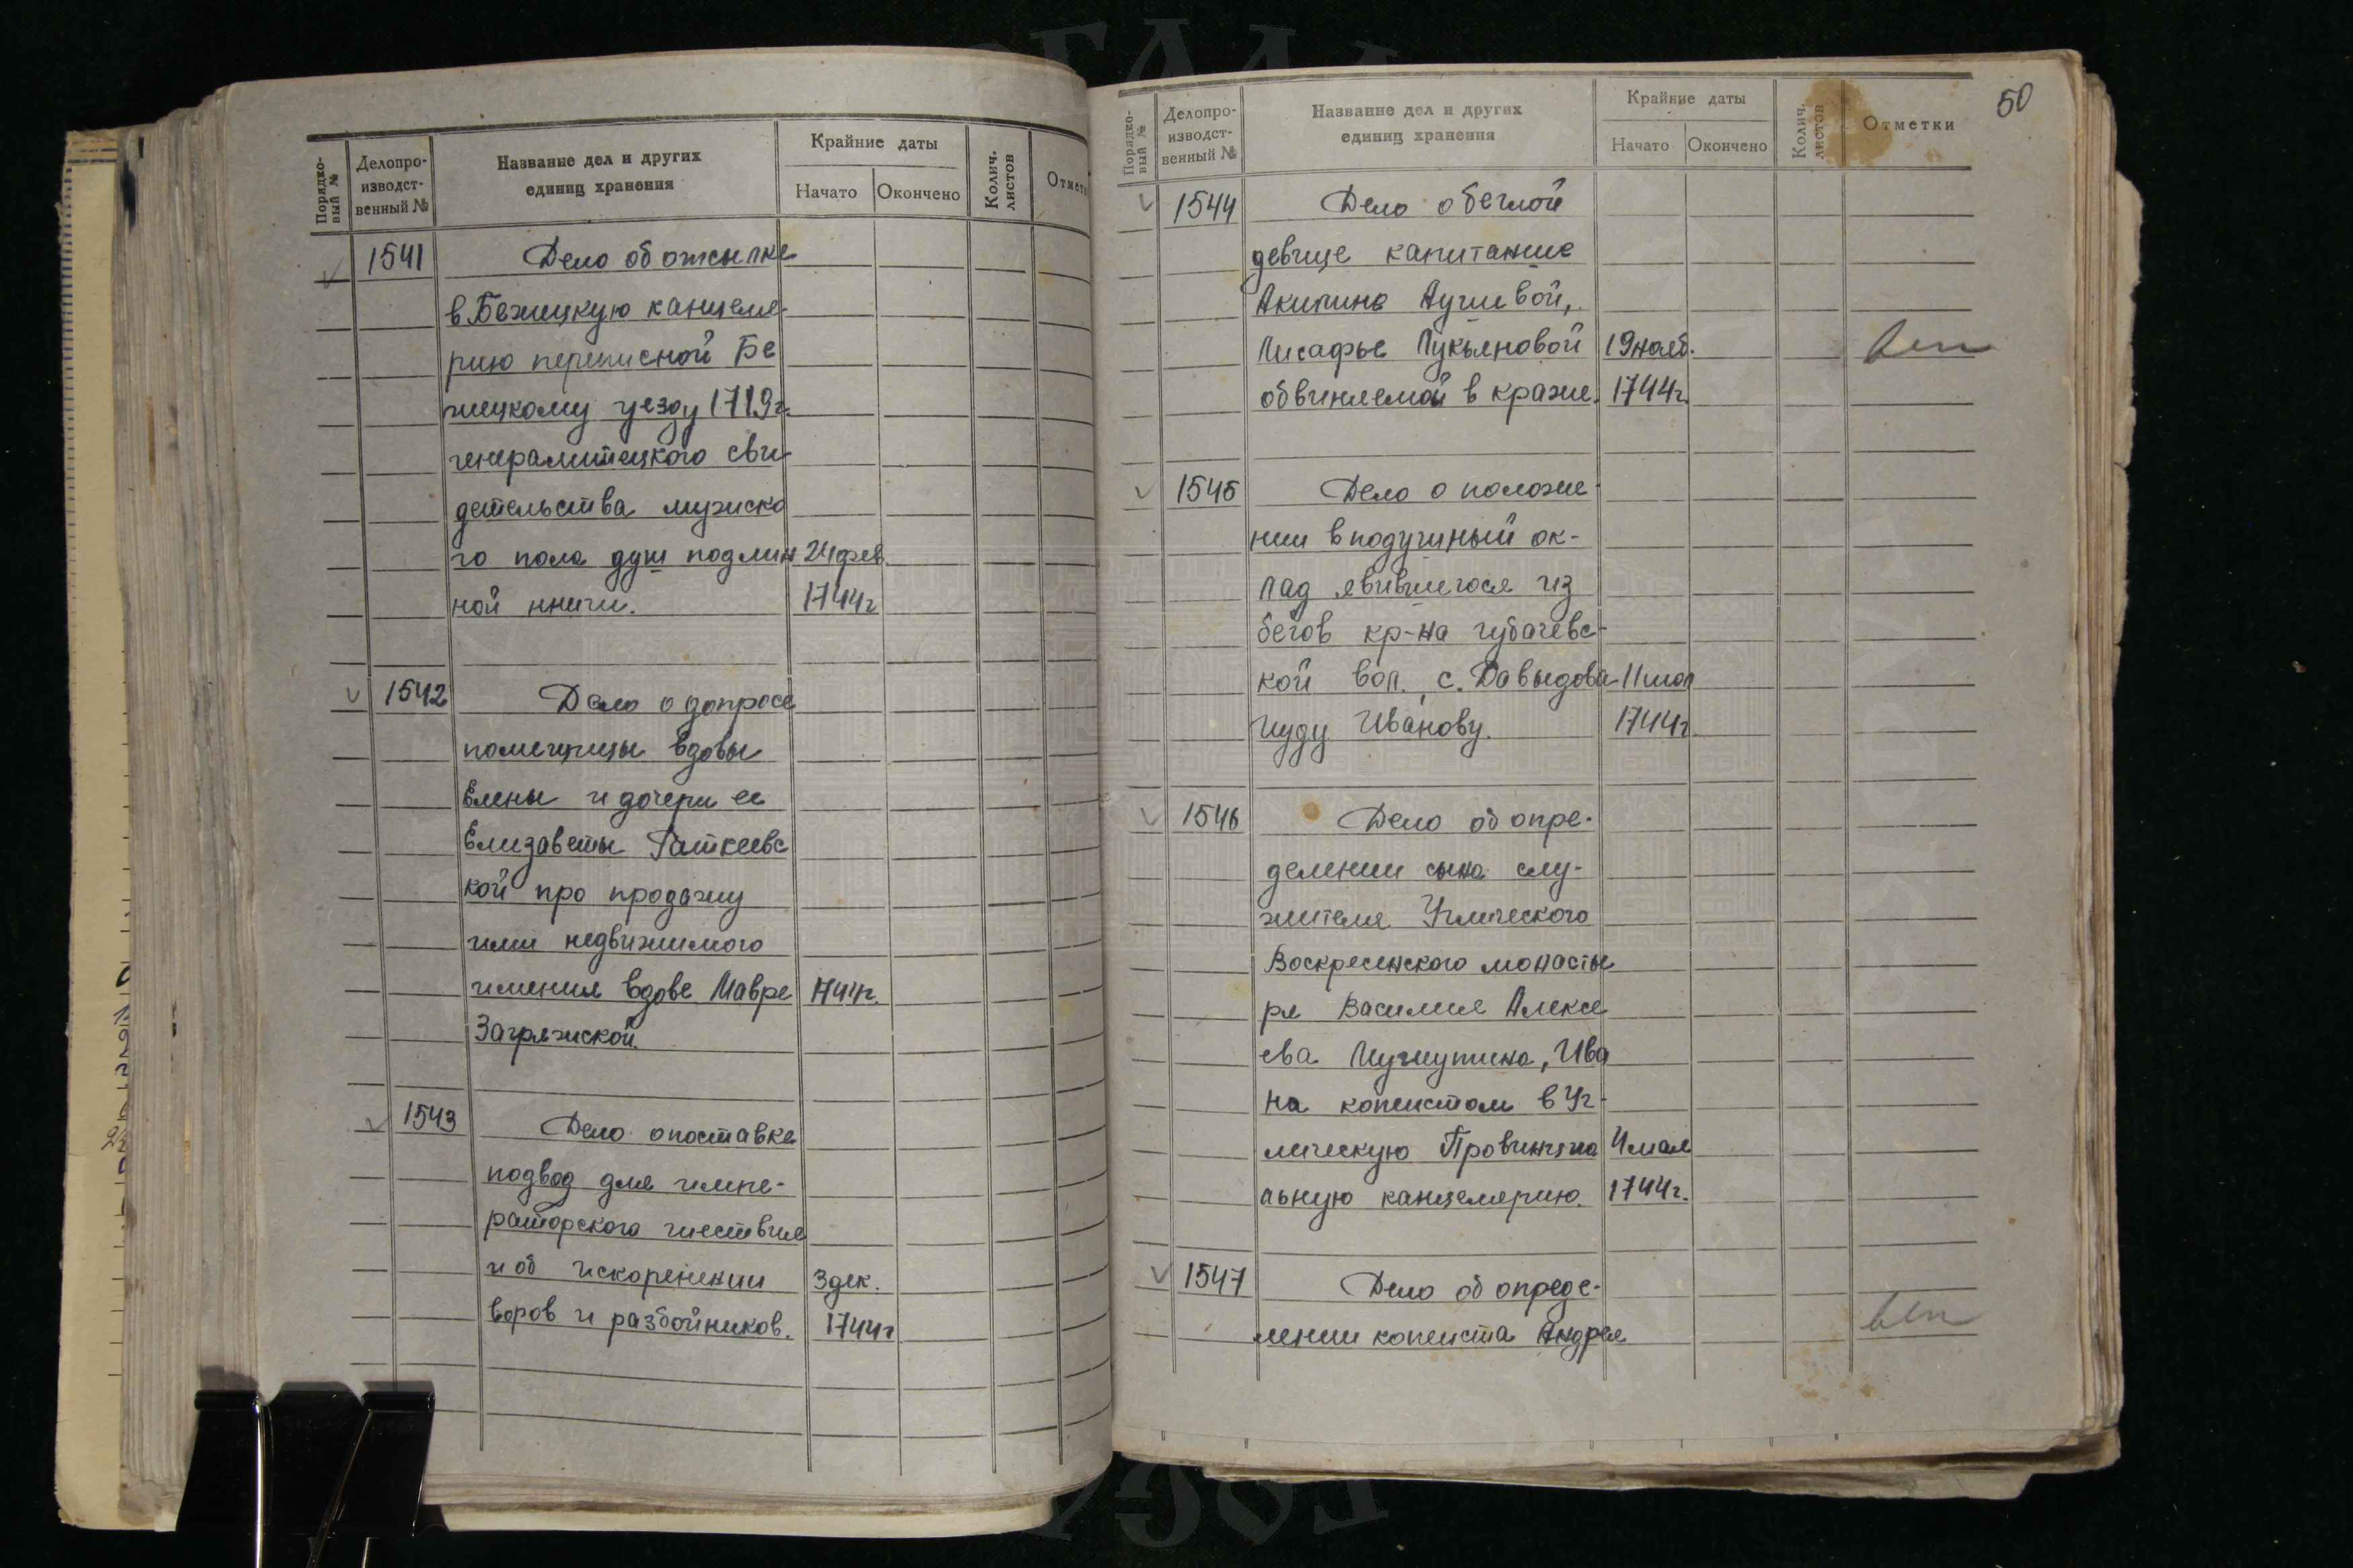 Порядко-
вый №
Делопро-
изводст-
венный №
Название дел и других
единиц хранения
Крайние даты
Начато
Окончено
Колич.
листов
1541
Дело об отсылке
в Бежицкую канцеля-
рию переписной Бе
жецкому уезду 1719г.
генералитецкого сви-
детельства мужско
го пола душ подлин 24 фев.
ной книги. 1744г
1542
Дело о допросе
помещицы вдовы
Елены и дочери ее
Елизаветы Раткеевс
кой про продажу
ими недвижимого
имения вдове Мавре 1744г.
Загряжской.
1543
Дело о поставке
подвод для импе-
раторского шествия
и об искоренении 3 дек.
воров и разбойников. 1744г
50
Порядко-
вый №
Делопро-
изводст-
венный №
Название дел и других
единиц хранения
Крайние даты
Начато
Окончено
Колич.
листов
Отметки
1544
Дело о беглой
девице капитанше
Акилине
Лукьяновой 19 нояб.
обвиняемой в краже. 1744г.
1545
Дело о положе-
нии в подушный ок-
лад явившегося из
бегов кр-на губачевс-
кой вол., с. Давыдова 11 июл
Иуду Иванову. 1744г
1546
Дело об опре-
делении сына слу-
жителя Угличского
Воскресенского монасты
ря Василия Алексе
ева Ива
на копеистом в Уг-
личскую Провинциа 4 мая
льную канцелярию. 1744г.
1547
Дело об опреде-
лении копеиста Андрея